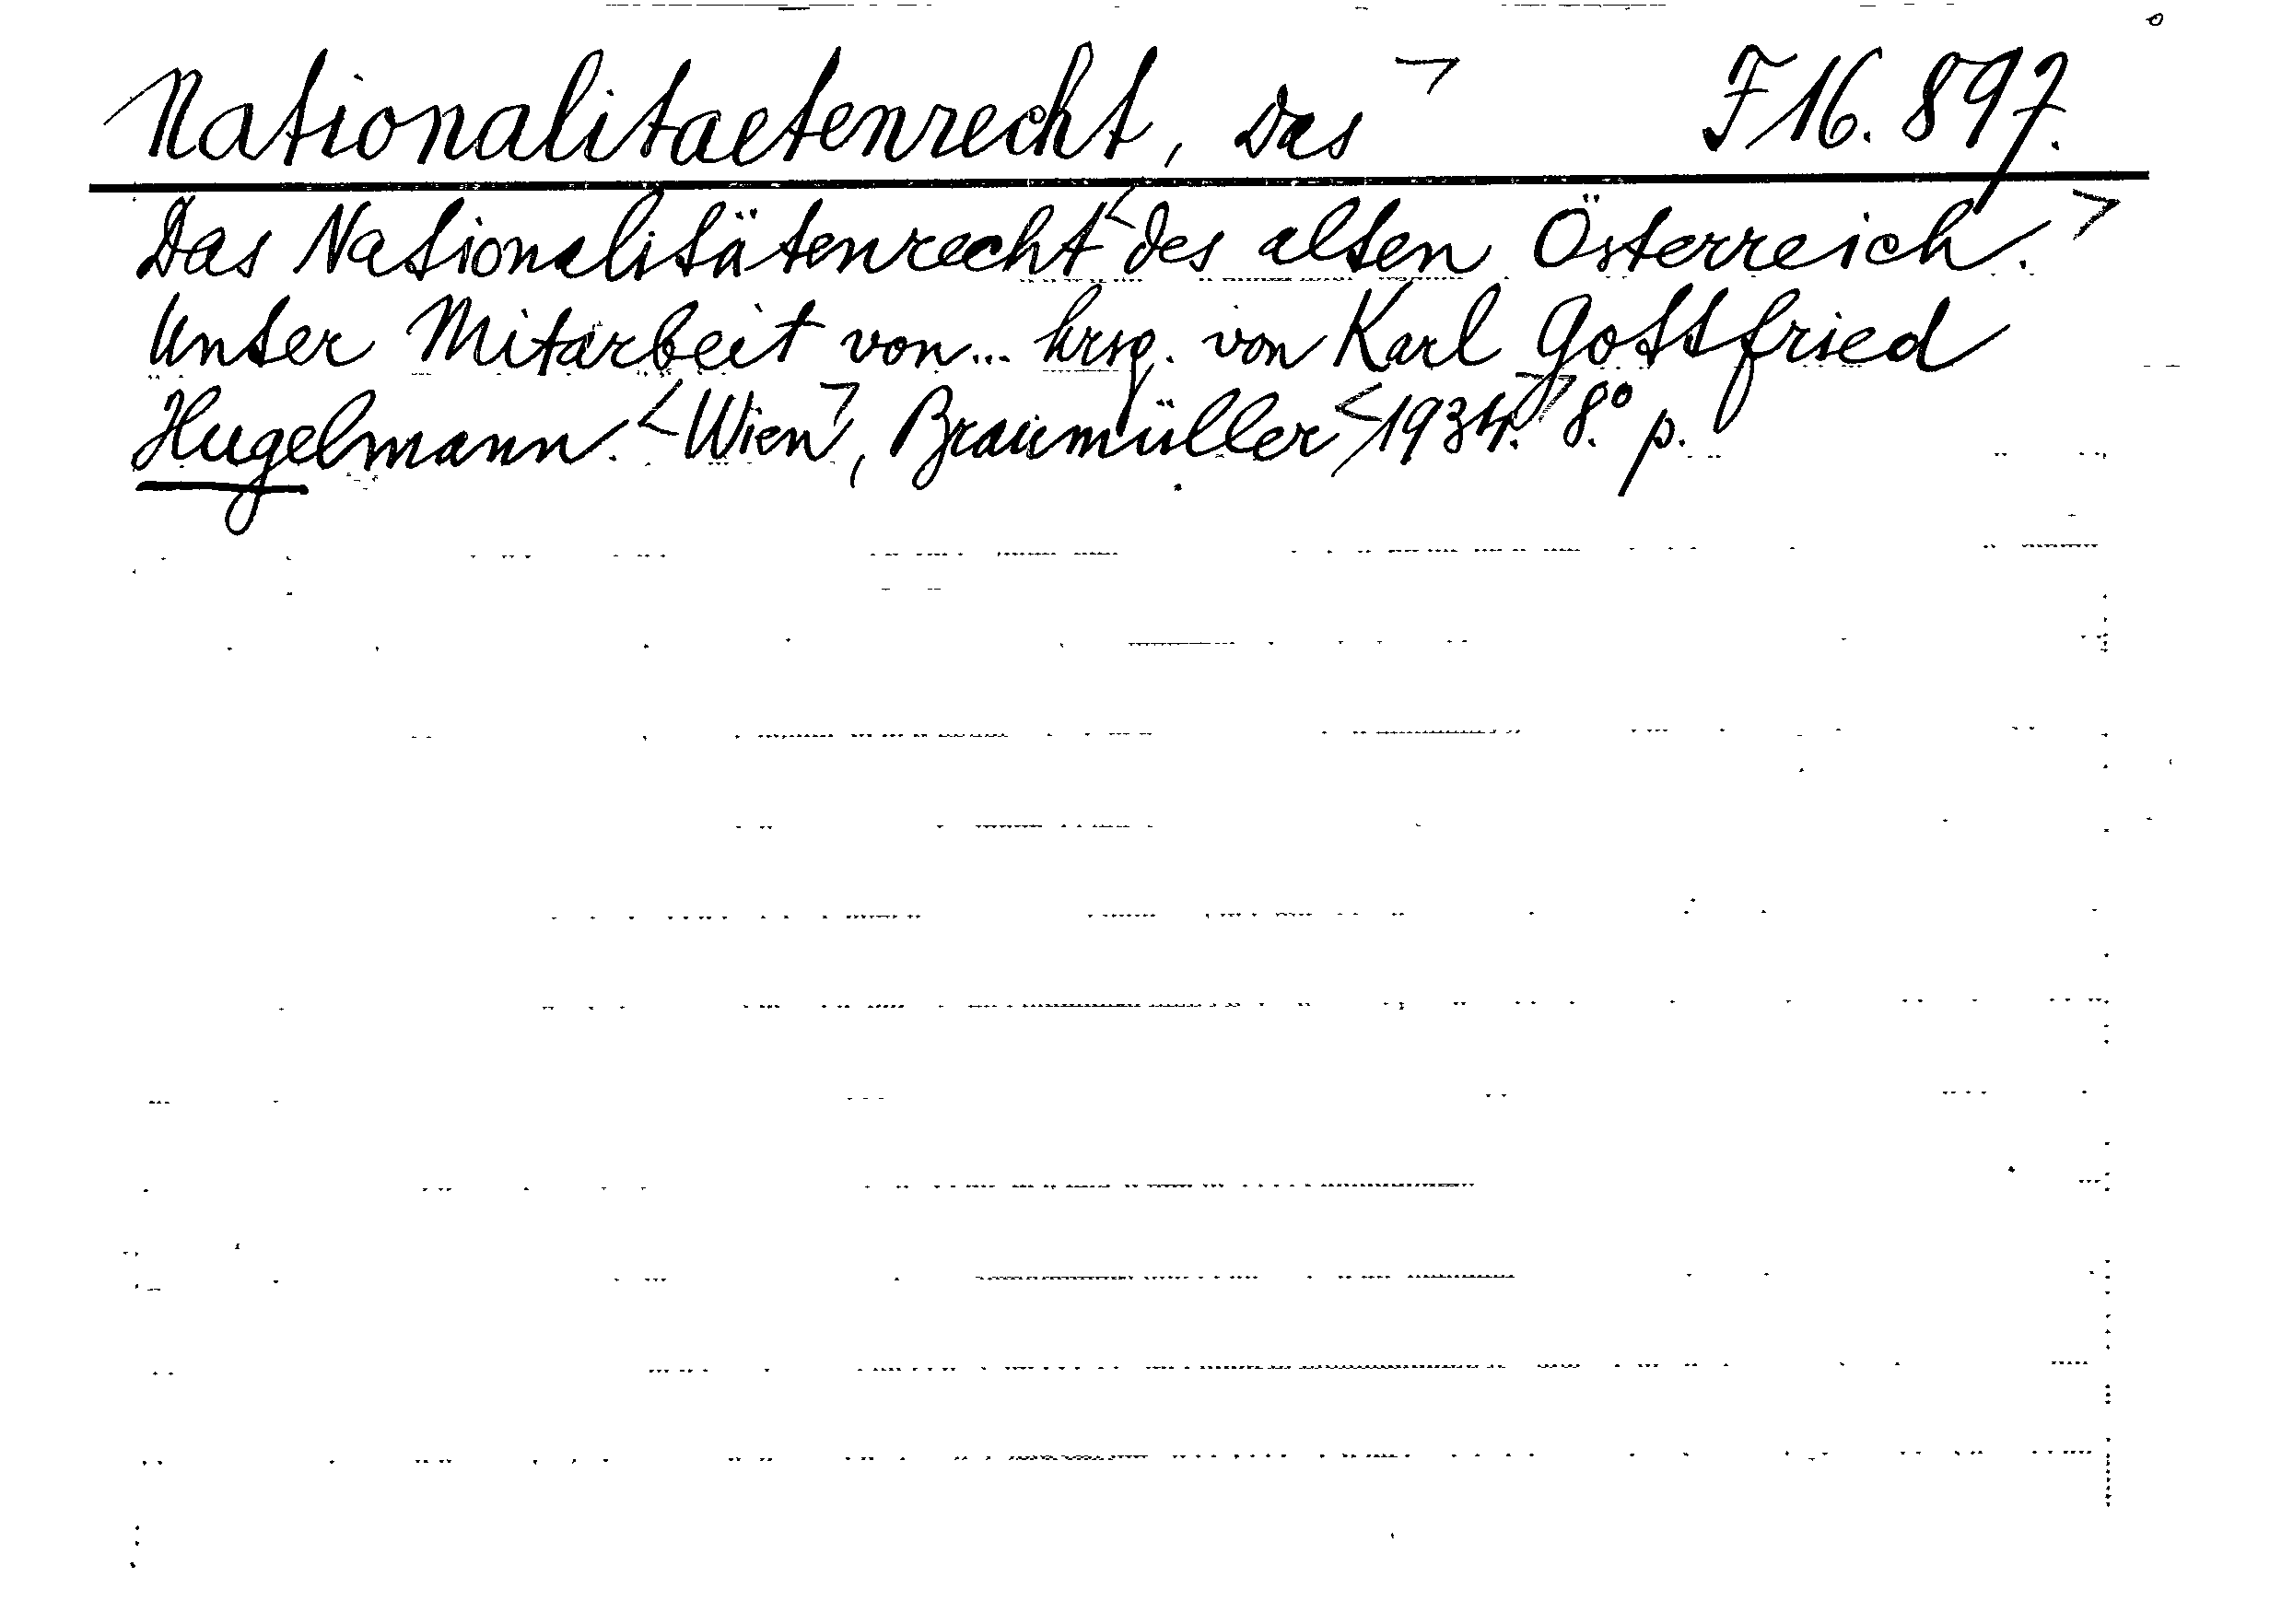 Nationalitaetenrecht, Das F 16.897.
Das Nationalitätenrecht des alten Österreich.
Unter Mitarbeit von... hrsg. von Karl Gottfried
Hugelmann. Wien, Braumüller 1934. 8.° p.